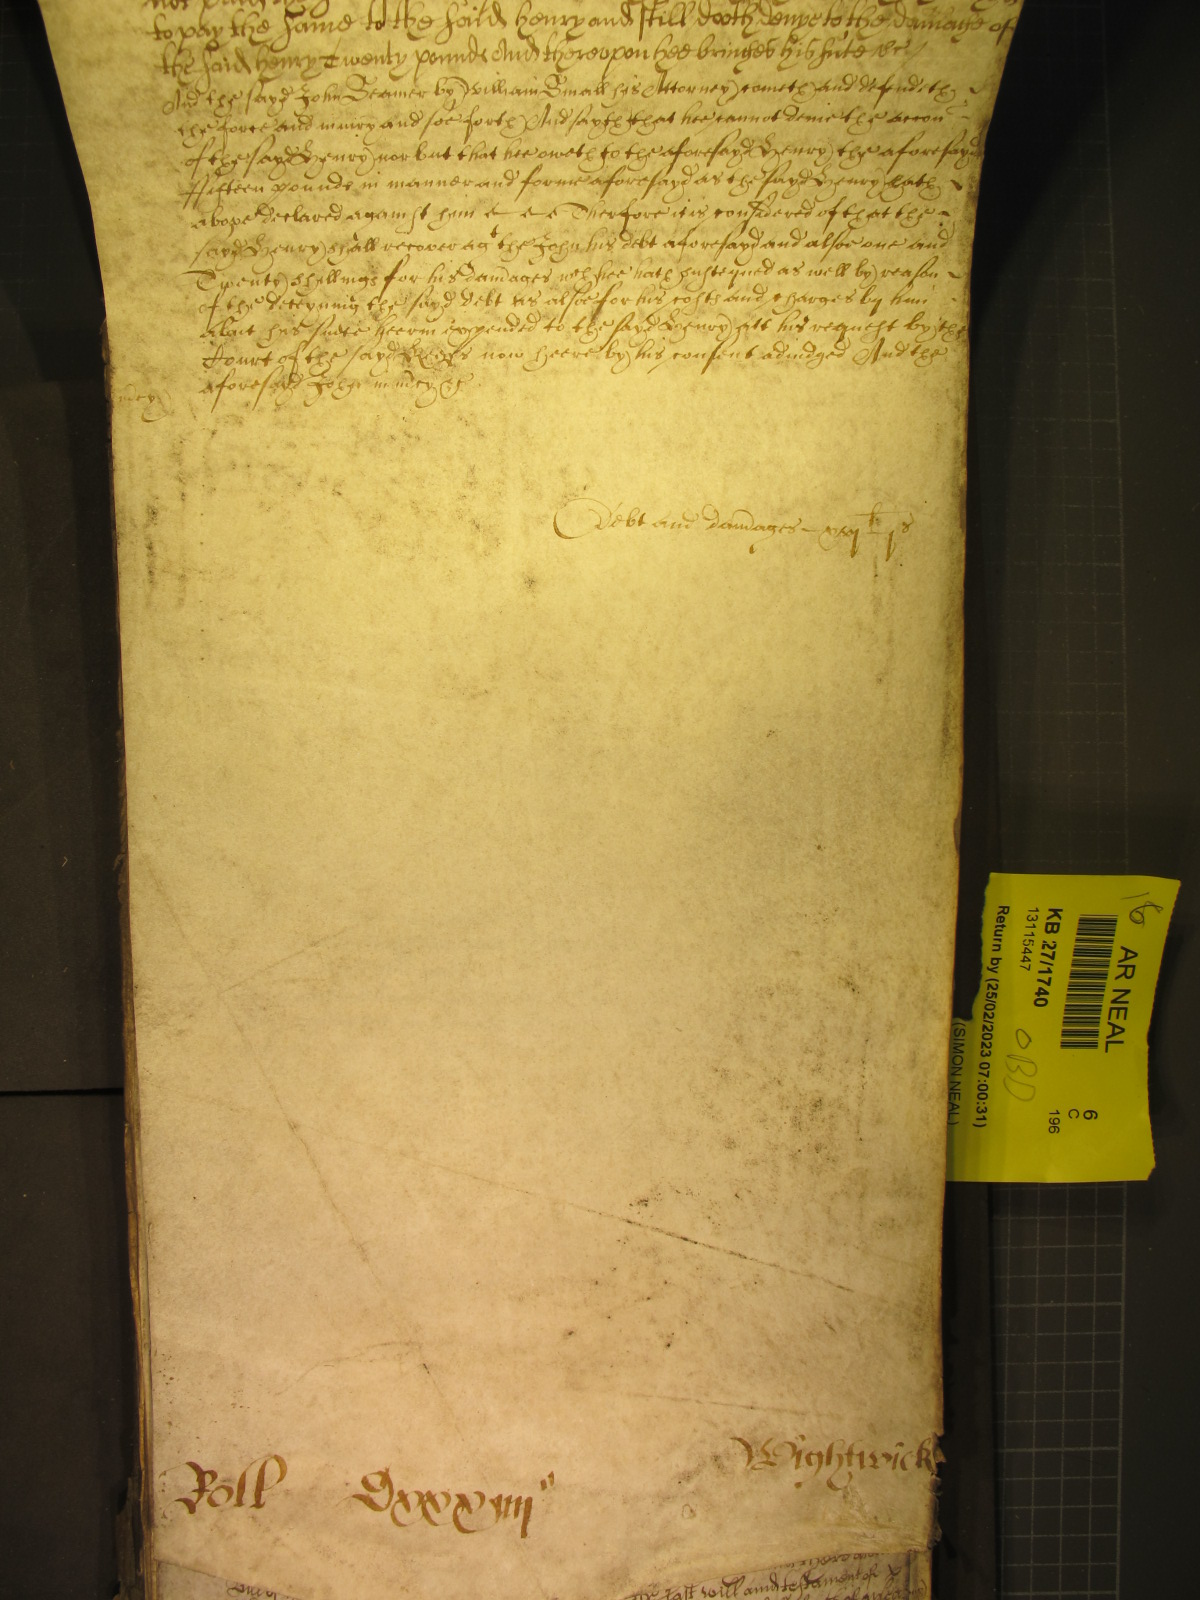 to pay the same to the said Henry and still dooth denye to the damage of
the said Henry Twenty pounds And thereopon hee bringes his sute &c
And the sayd John Seamer by William Small his Attorney cometh and defendeth
the force and iniury and soe forth And sayth that hee cannot denie the accon
of the sayd Henry nor but that hee oweth to the aforesayd Henry the aforesayd
ffifteen pounds in manner and forme aforesayd as the sayd Henry hath
above declared against him Therfore it is considered of that the
sayd Henry shall recover agt the John his debt aforesayd and alsoe one and
Twenty shillings for his damages wch hee hath susteyned as well by reason
of the deteyning the sayd debt as alsoe for his costs and charges by him
about his suete heerin expended to the sayd Henry att his request by the
Court of the sayd now heere by his consent adiudged And the
aforesayd John in mcy &c
mcy
Debt and damages - xvjli js
Wightwick
Roll Dxxxiiij
the last will and testament of
AR NEAL
KB 27/1740
13115447
Return by (25/02/2023 07:00:31)
(SIMON NEAL)
6
C
196
18